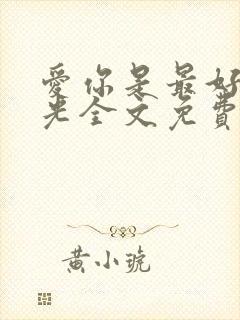 愛你是最好
光全文免費
黄小琥